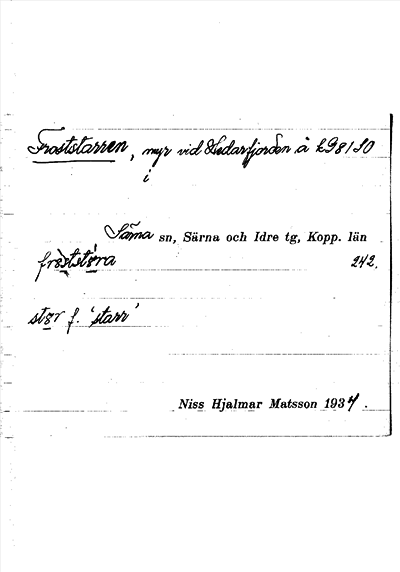 Froststarren, myr vid Hedarfjorden å L98150
i
Särna sn, Särna och Idre tg, Kopp. län
fròststöra 242.
stør f. 'starr'
Niss Hjalmar Matsson 1937.